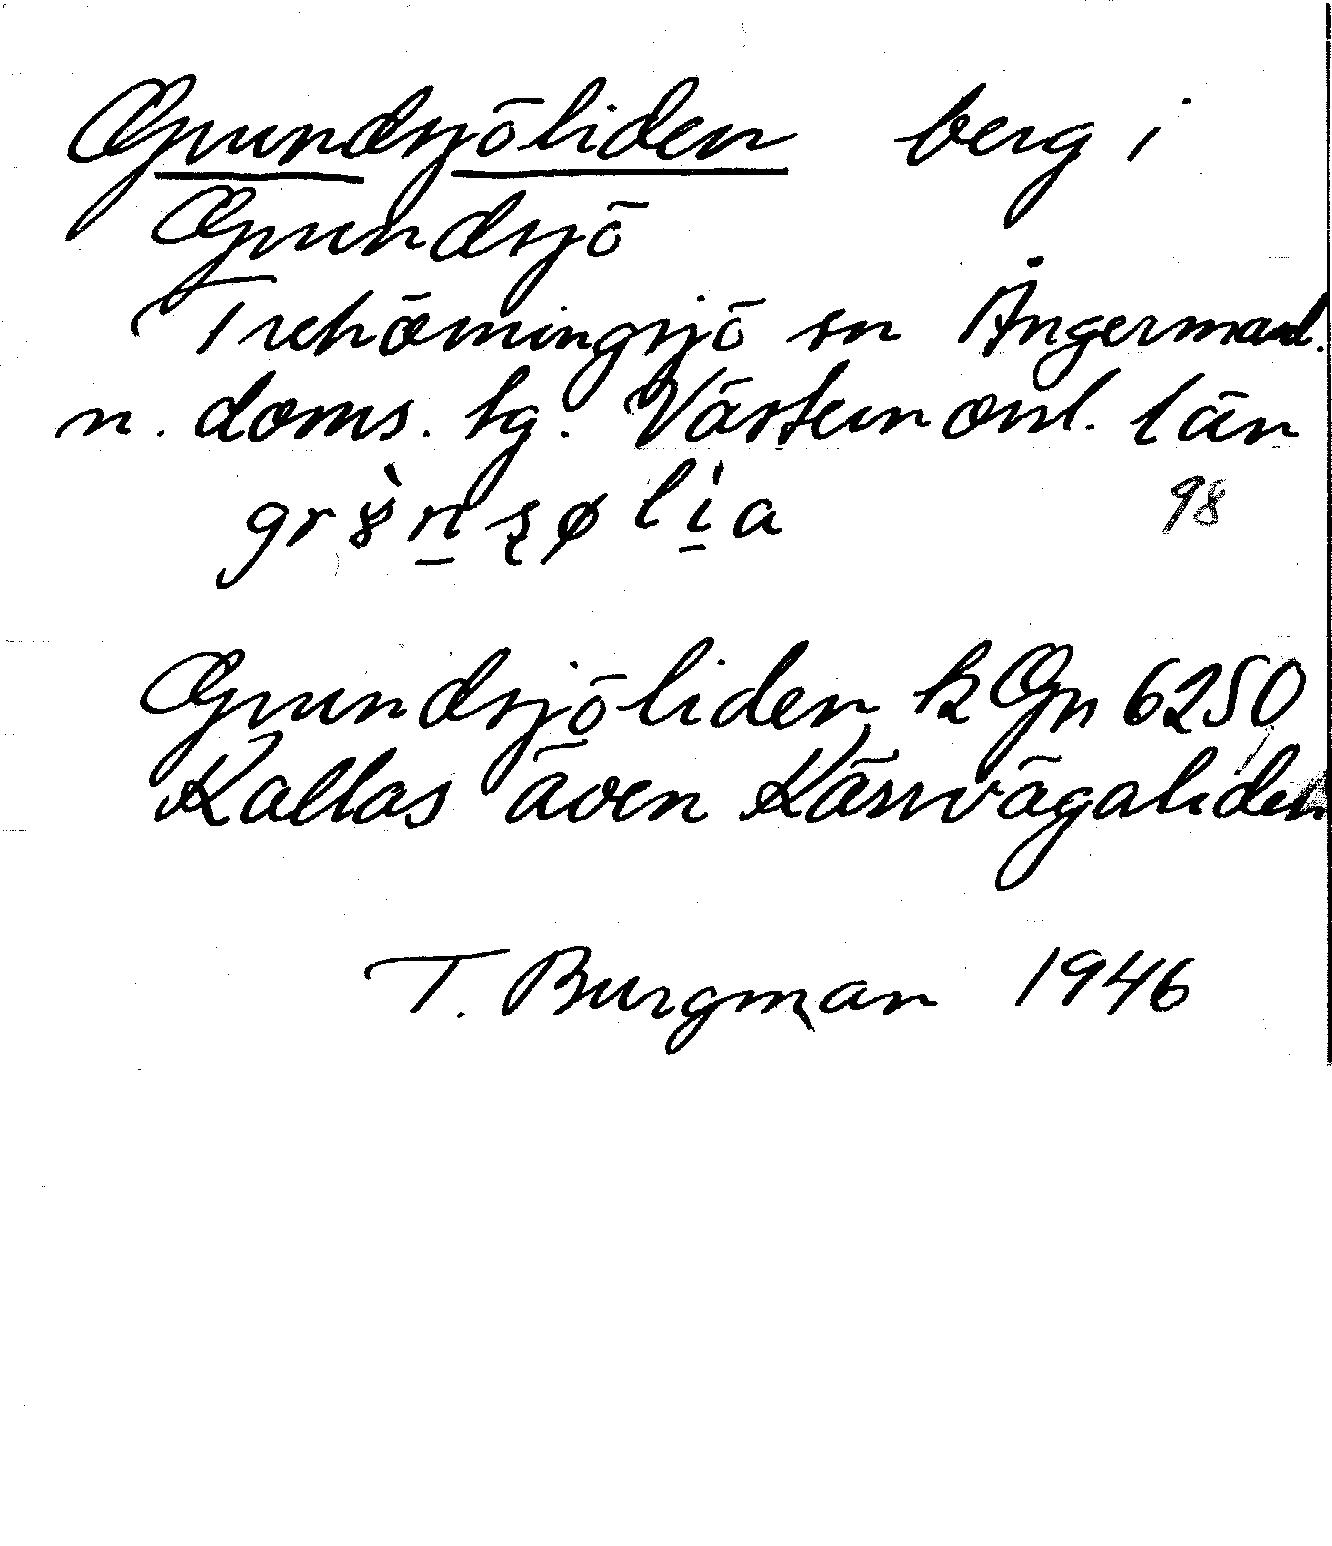 Grundsjöliden berg i
Grundsjö
Trehörningsjö sn Ångermanl.
n. doms. tg. Västernorrl. län
98
Grundsjöliden k Gn 6250
Kallas även Kärrvägaliden
T. Burgman 1946